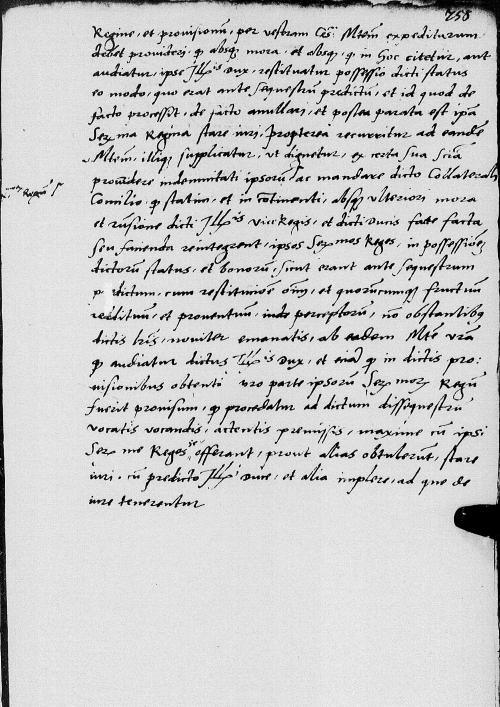 258
Regine, et prouisionũ, per vestram Ces: Mtem expeditarum
debet prouideri, q absq mora, et absq, q in hoc citetur, aut
audiatur, ipse Illis Dux, restituatur possessio dicti status
eo modo, quo erat ante sequestrũ predictũ, et id quod de
facto processit, de facto anullari, et postea parata est ipã
Serma Regina stare iuri, Propterea recurritur ad eandẽ
Mtem, illiq, supplicatur, vt dignetur, ex certa sua sciã
prouidere indemnitati ipsorũ ac mandare dicto Collaterali
Consilio, q statim, et in cõtinenti, absq vlteriori mora
et dicti Illis vice Regis, et dicti Ducis facte facta
seu fatienda reintegrent, ipsos Sermos Reges, in possessiõe
dictorũ status, et bonorũ, sicut erant ante sequestrum
p dictum, cum restitutiõe oĩm, et quorũcumq fructuũ
reddituũ, et prouentuũ, inde perceptorũ, nõ obstantibq
dictis lrĩs, nouiter emanatis, ab eadem Mte vrã
q audiatur dictus Illis Dux, et etiã q in dictis pro:
uisionibus obtenti pro parte ipsorũ Sermor Regũ
fuerit prouisum, q procedatur ad dictum dissequestrũ
vocatis vocandis, actentis premissis, maxime cũ ipsi
Sermi Reges se offerant, prout alias obtulerũt, stare
iuri, cũ predicto Illi Duce, et alia implere, ad que de
iure tenerentur